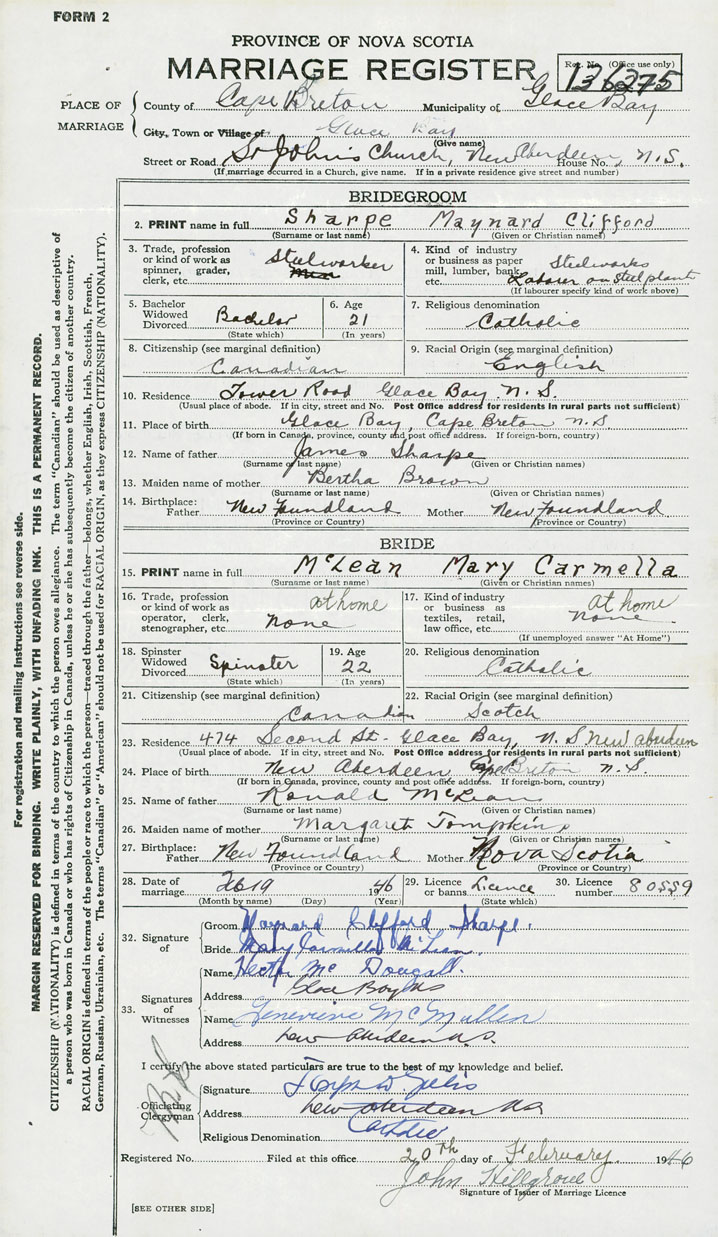 FORM 2
PROVINCE OF NOVA SCOTIA
MARRIAGE REGISTER
Reg. No. (Office use only)
PLACE OF MARRIAGE
County of Cape Breton Municipality of Glace Bay
City, Town or Village of Glace Bay
(Give name)
Street or Road St John's Church, New Aberdeen House No. , N.S.
(If marriage occurred in a Church, give name. If in a private residence give street and number)
BRIDEGROOM
2. PRINT name in full Sharpe Maynard Clifford
(Surname or last name) (Given or Christian names)
3. Trade, profession or kind of work as spinner, grader, clerk, etc. Steelworker
4. Kind of industry or business as paper mill, lumber, bank, etc. Steelworks Labourer on steel plant
(If labourer specify kind of work above)
5. Bachelor Widowed Divorced Bachelor
(State which)
6. Age 21
(In years)
7. Religious denomination Catholic
8. Citizenship (see marginal definition) Canadian
9. Racial Origin (see marginal definition) English
10. Residence Tower Road Glace Bay N.S.
(Usual place of abode. If in city, street and No. Post Office address for residents in rural parts not sufficient)
11. Place of birth Glace Bay, Cape Breton N.S.
(If born in Canada, province, county and post office address. If foreign-born, country)
12. Name of father James Sharpe
(Surname or last name) (Given or Christian names)
13. Maiden name of mother Bertha Brown
(Surname or last name) (Given or Christian names)
14. Birthplace: Father New Foundland Mother New Foundland
(Province or Country) (Province or Country)
BRIDE
15. PRINT name in full McLean Mary Carmella
(Surname or last name) (Given or Christian names)
16. Trade, profession or kind of work as operator, clerk, stenographer, etc. at home None
17. Kind of industry or business as textiles, retail, law office, etc. At home none
(If unemployed answer "At Home")
18. Spinster Widowed Divorced Spinster
(State which)
19. Age 22
(In years)
20. Religious denomination Catholic
21. Citizenship (see marginal definition) Canadian
22. Racial Origin (see marginal definition) Scotch
23. Residence 474 Second St - Glace Bay, N.S New Aberdeen
(Usual place of abode. If in city, street and No. Post Office address for residents in rural parts not sufficient)
24. Place of birth New Aberdeen Cape Breton N.S.
(If born in Canada, province, county and post office address. If foreign-born, country)
25. Name of father Ronald McLean
(Surname or last name) (Given or Christian names)
26. Maiden name of mother Margaret Tompkins
(Surname or last name) (Given or Christian names)
27. Birthplace: Father New Foundland Mother Nova Scotia
(Province or Country) (Province or Country)
28. Date of marriage 19 1946
(Month by name) (Day) (Year)
29. Licence or banns Licence
(State which)
30. Licence number 80559
32. Signature of
Groom Maynard Clifford Sharpe.
Bride Mary Carmella McLean.
33. Signatures of Witnesses
Name Hector McDougall.
Address Glace Bay NS
Name Genevieve McMullen
Address New Aberdeen N.S.
I certify the above stated particulars are true to the best of my knowledge and belief.
Officiating Clergyman
Signature
Address New Aberdeen NS
Religious Denomination Catholic
Registered No. Filed at this office 20th day of February 1946
John Hillgrove
Signature of Issuer of Marriage Licence
[SEE OTHER SIDE]
For registration and mailing instructions see reverse side.
MARGIN RESERVED FOR BINDING. WRITE PLAINLY, WITH UNFADING INK. THIS IS A PERMANENT RECORD.
CITIZENSHIP (NATIONALITY) is defined in terms of the country to which the person owes allegiance. The term "Canadian" should be used as descriptive of
a person who was born in Canada or who has rights of Citizenship in Canada, unless he or she has subsequently become the citizen of another country.
RACIAL ORIGIN is defined in terms of the people or race to which the person—traced through the father—belongs, whether English, Irish, Scottish, French,
German, Russian, Ukrainian, etc. The terms "Canadian" or "American" should not be used for RACIAL ORIGIN, as they express CITIZENSHIP (NATIONALITY).